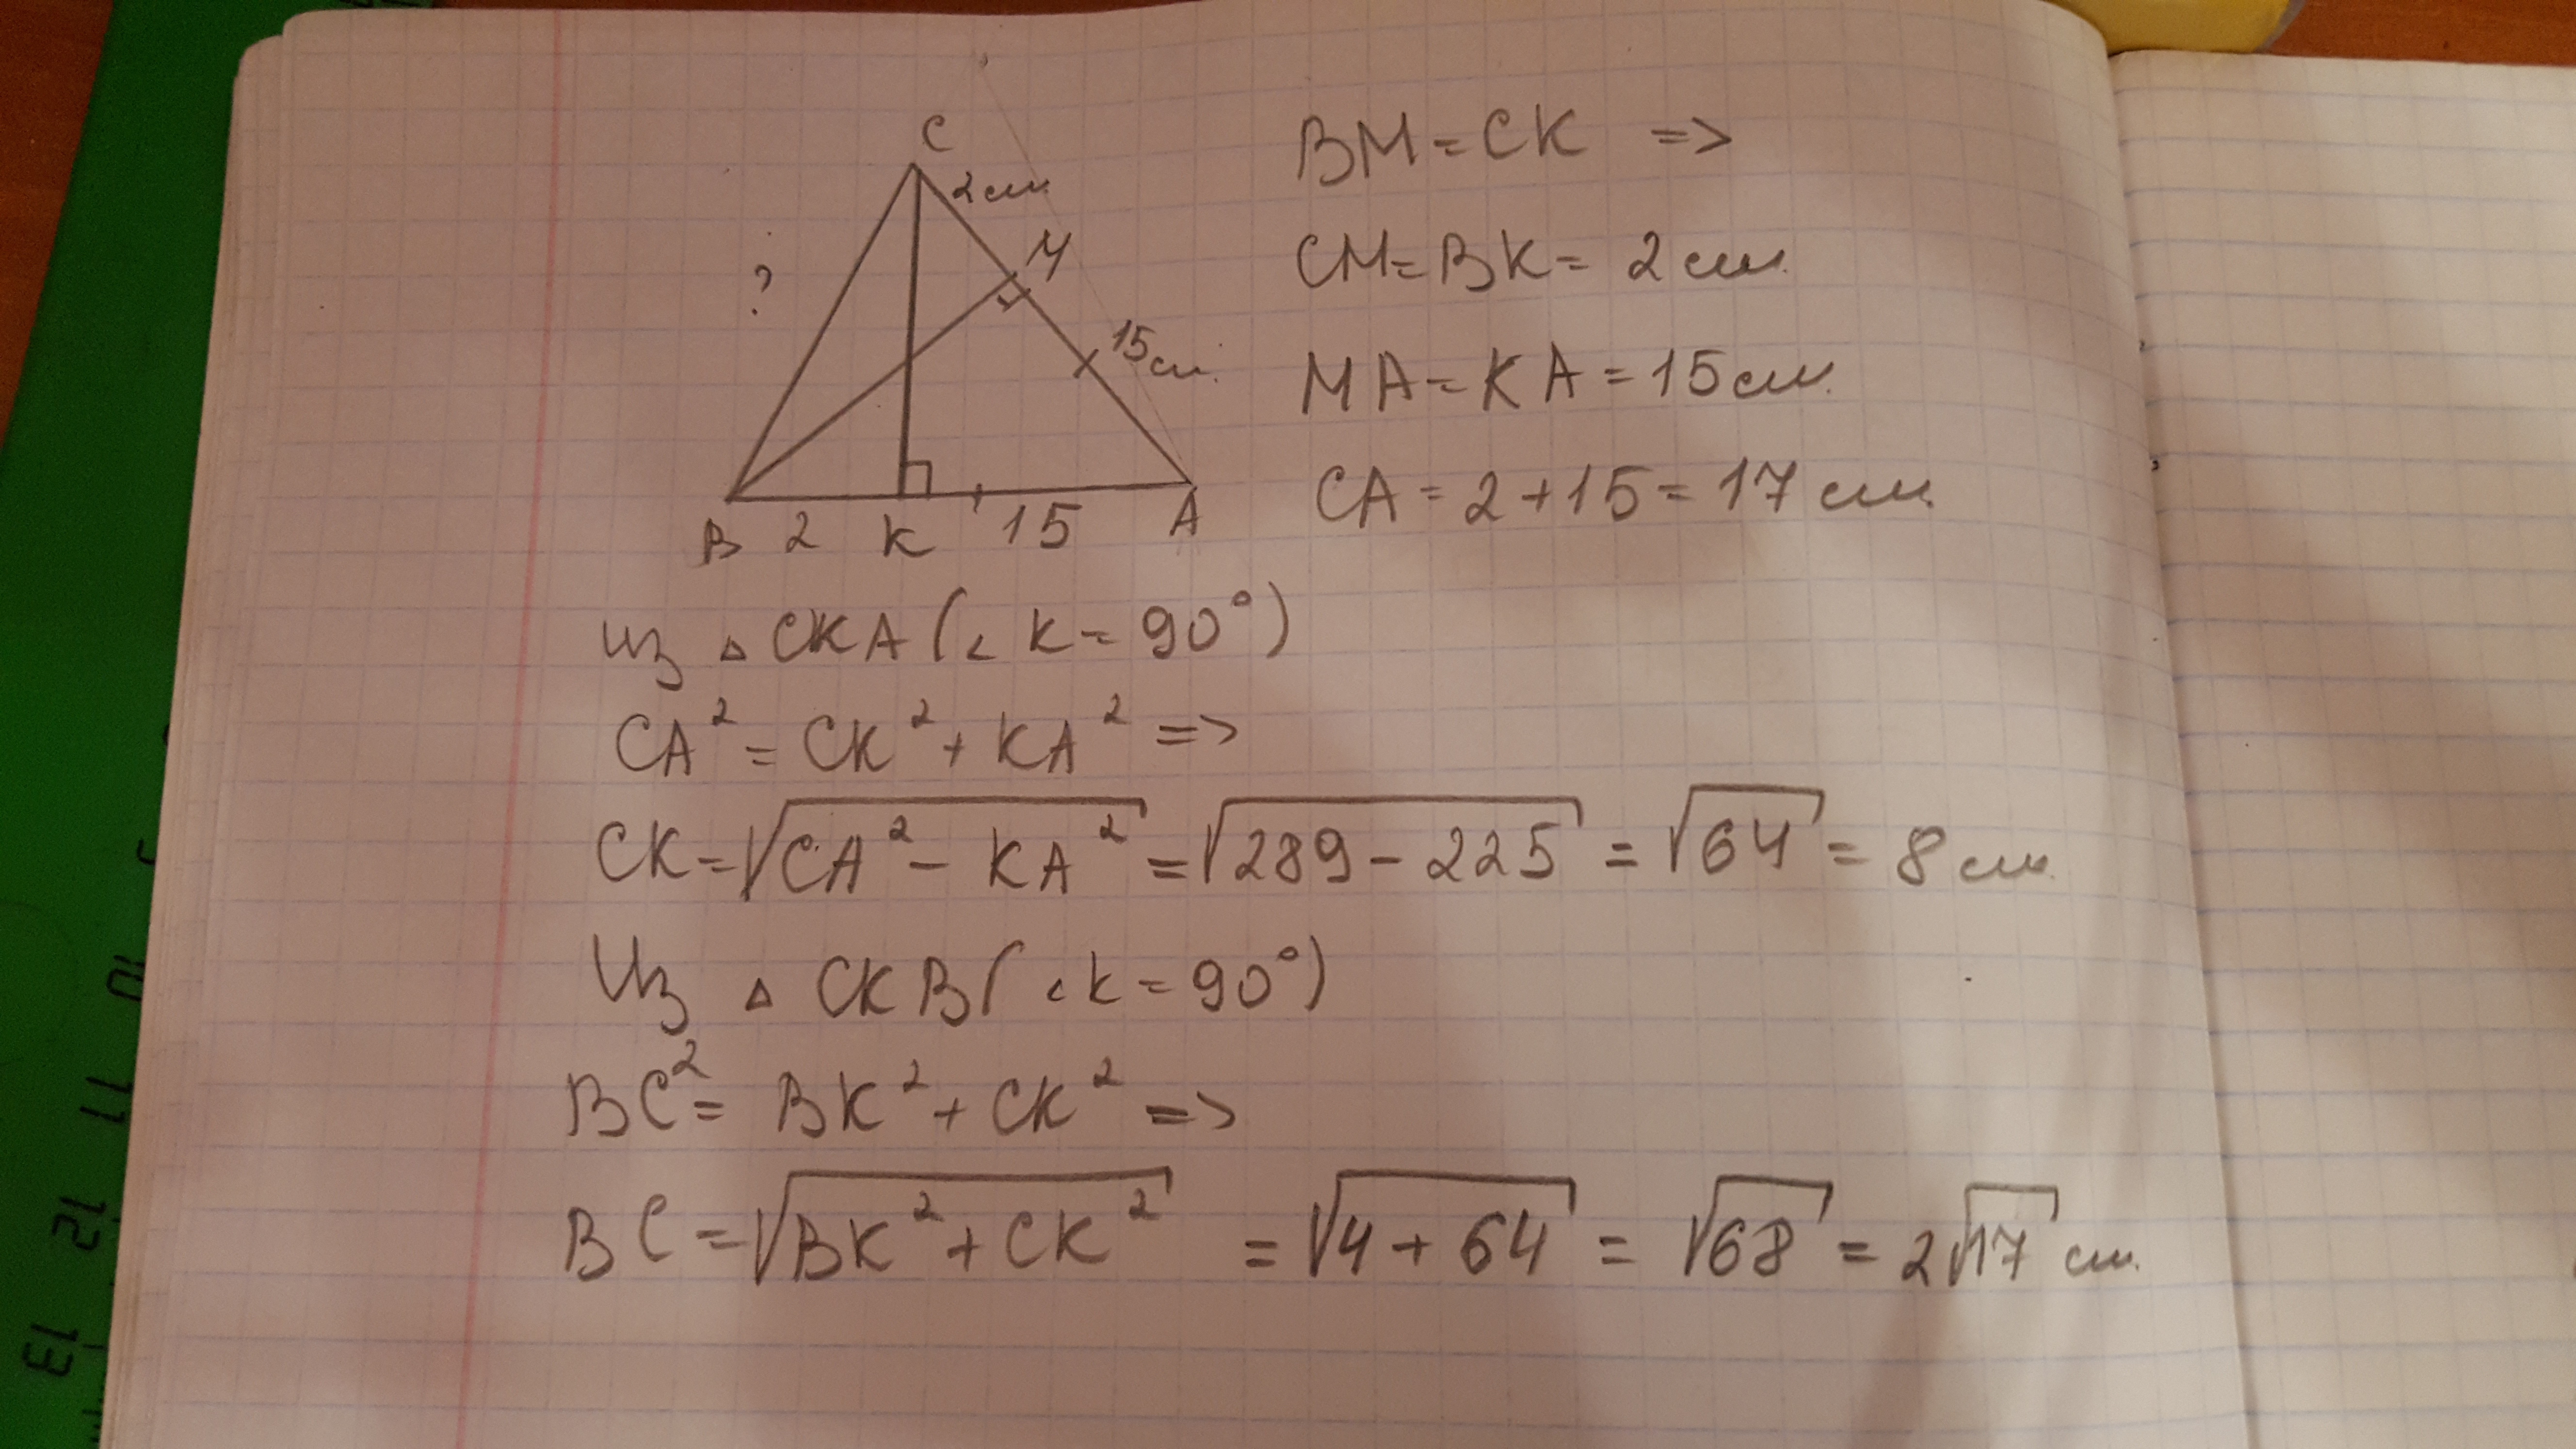 C
2см
M
?
15см.
B 2 K 15 A
BM = CK =>
CM = BK = 2см.
MA = KA = 15см.
CA = 2 + 15 = 17 см.
Из △ CKA (∠ K = 90°)
CA² = CK² + KA² =>
CK = √CA² - KA² = √289 - 225 = √64 = 8 см.
Из △ CKB (∠ K = 90°)
BC² = BK² + CK² =>
BC = √BK² + CK² = √4 + 64 = √68 = 2√17 см.
10
11
12
13